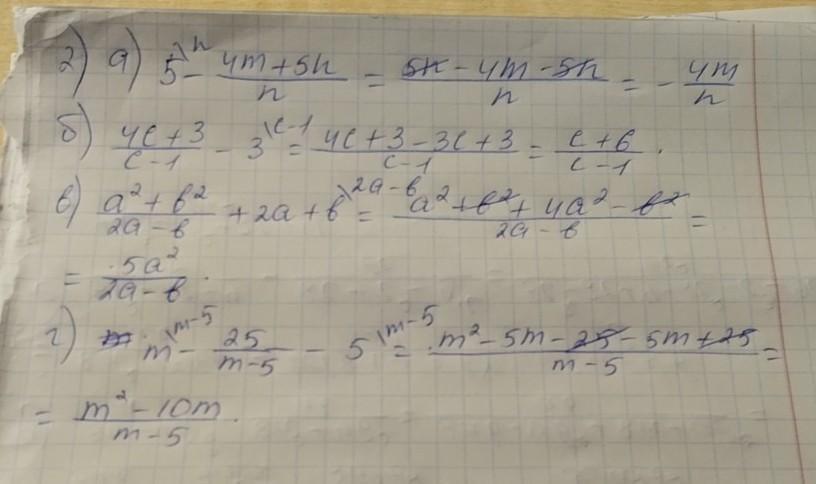 2) а) 5\ⁿ - (4m+5n)/n = (5n - 4m - 5n)/n = - 4m/n
б) (4c+3)/(c-1) - 3\ᶜ⁻¹ = (4c+3-3c+3)/(c-1) = (c+6)/(c-1).
в) (a²+b²)/(2a-b) + 2a+b\²ᵃ⁻ᵇ = (a²+b²+4a²-b²)/(2a-b) =
= 5a²/(2a-b).
г) m\ᵐ⁻⁵ - 25/(m-5) - 5\ᵐ⁻⁵ = (m²-5m-25-5m+25)/(m-5) =
= (m²-10m)/(m-5).